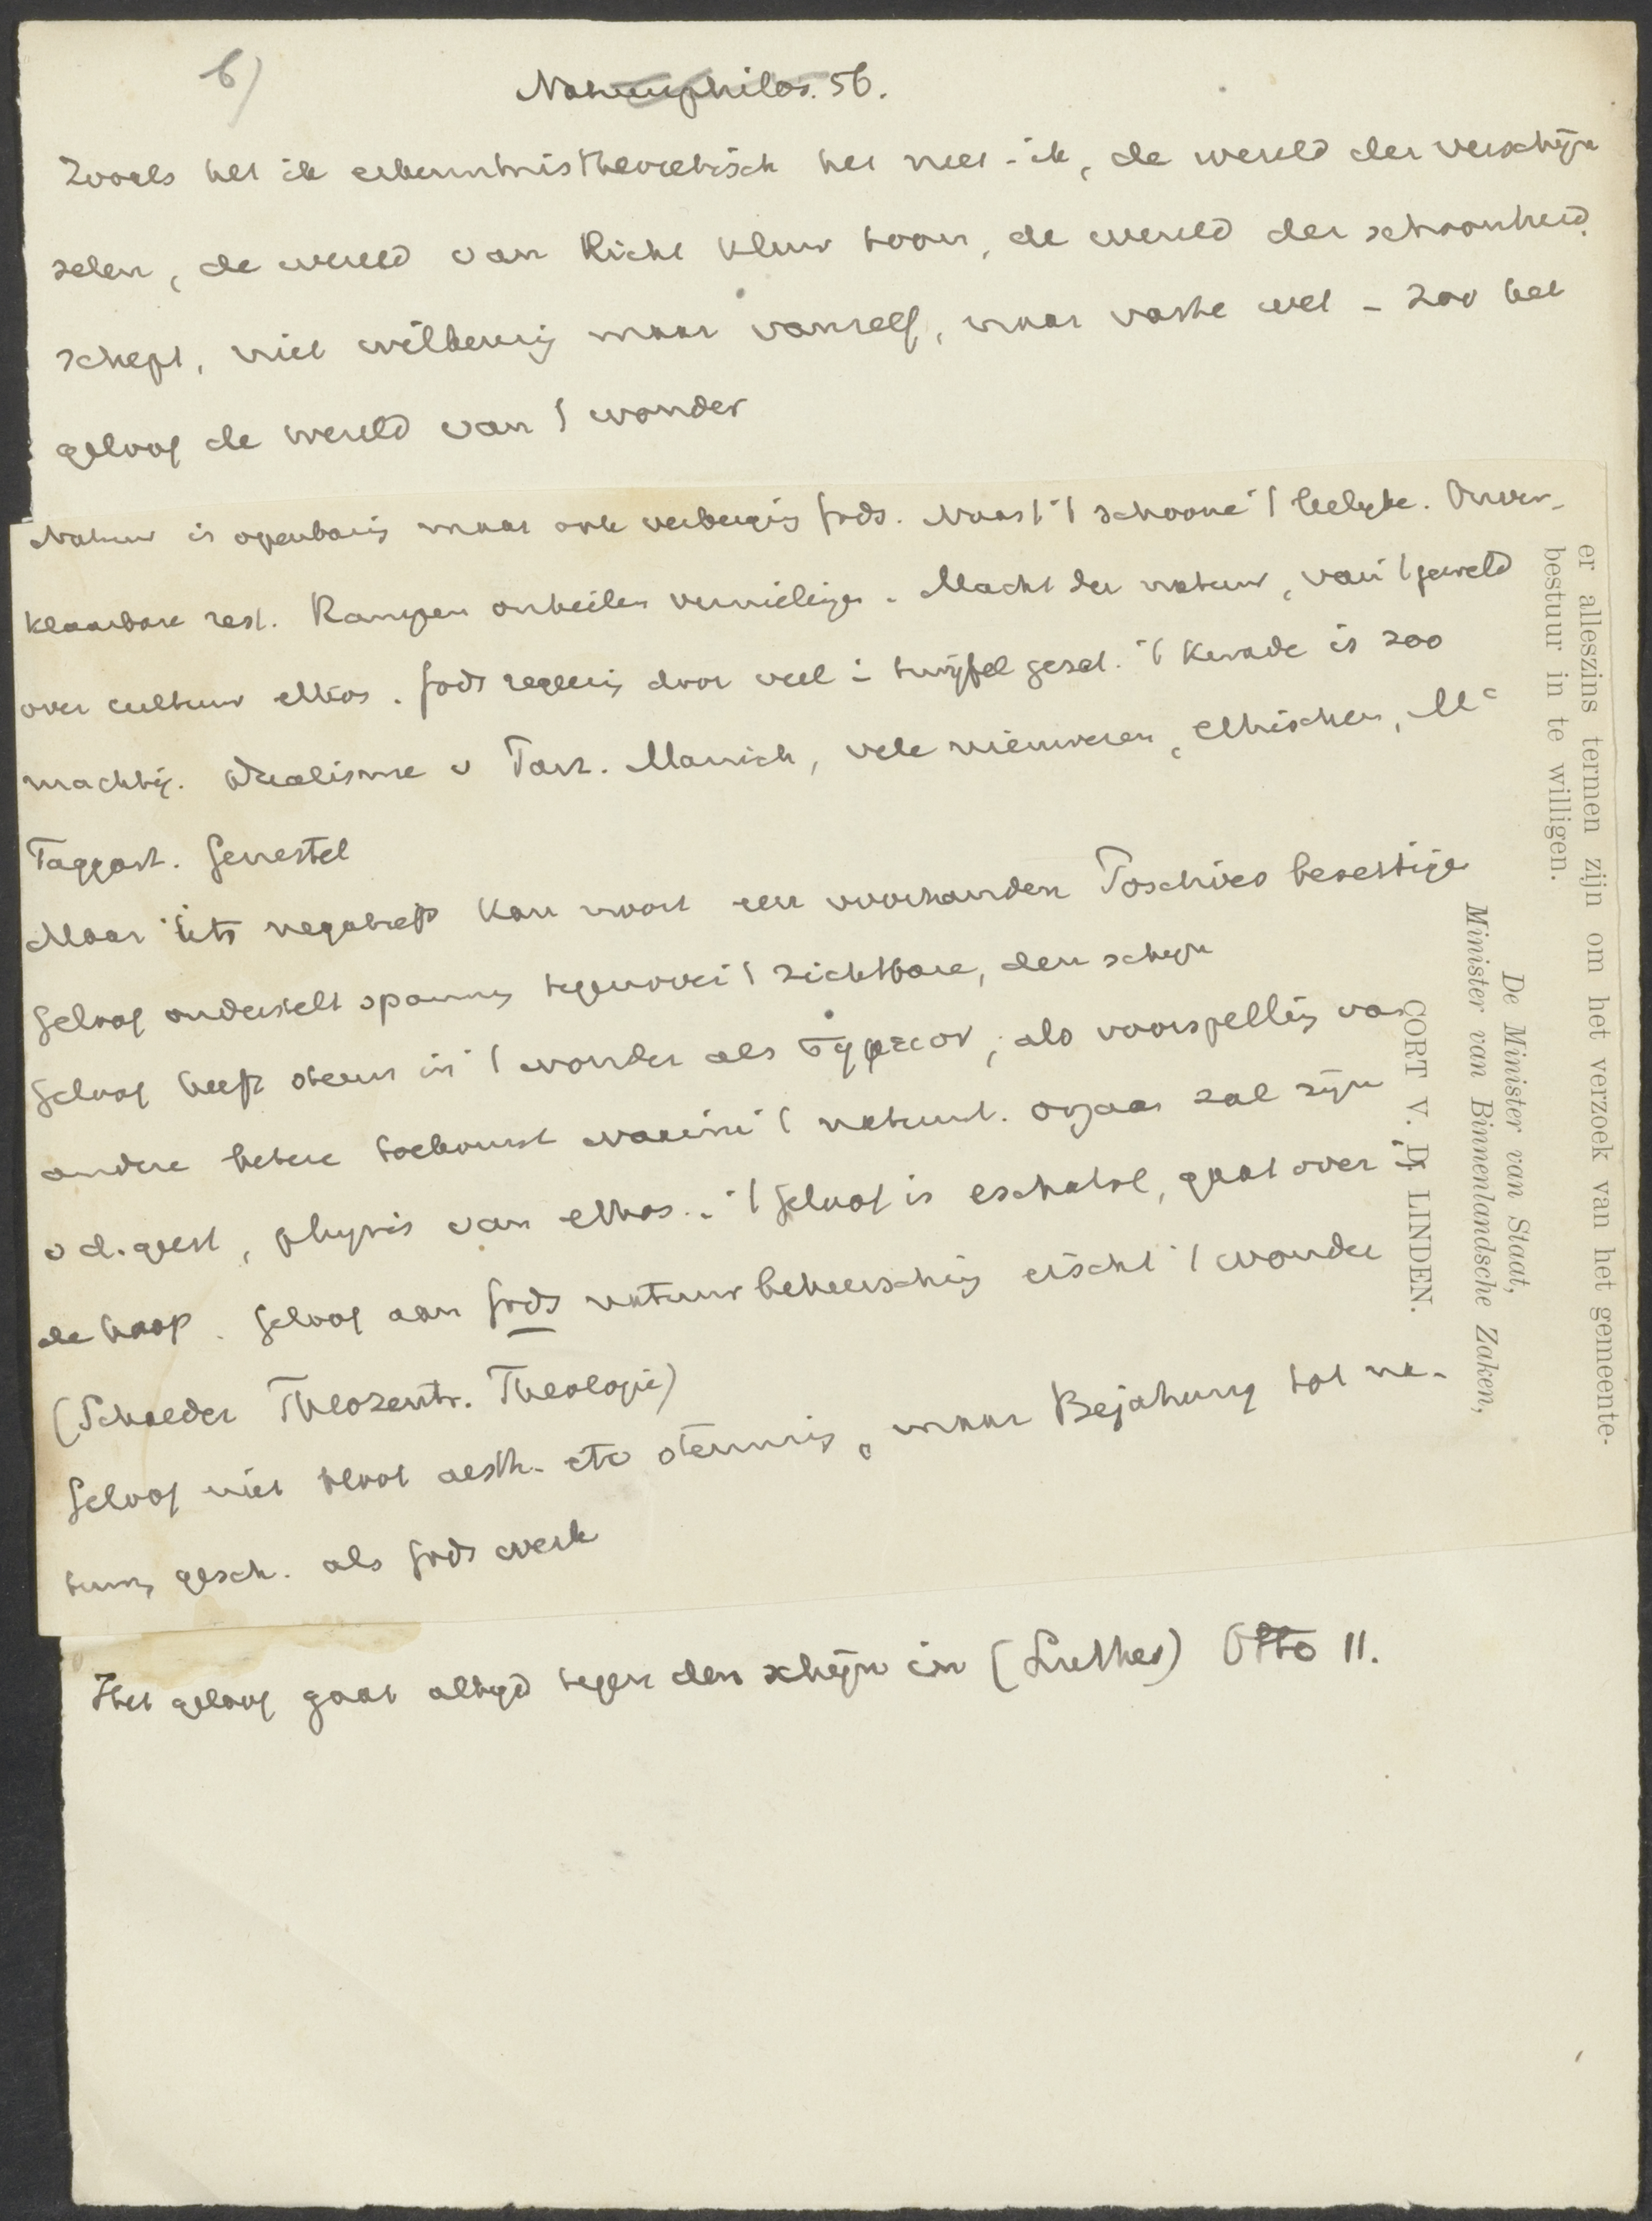 6)
Naturphilos. 56.
Zooals het ik erkenntnistheoretisch het niet-ik, de wereld der verschijn
selen, de wereld van licht kleur toon, de wereld der schoonheid
schept, niet willekeurig maar vanzelf, naar vaste wet - zoo het
geloof de wereld van 't wonder
Natuur is openbaring maar ook verberging Gods. Naast 't schoone 't leelyke. Onver-
klaarbare rest. Rampen onheilen vernielingen. Macht der natuur, van 't geweld
over cultuur ethos. Gods regeering door veel in twyfel gezet. 't Kwade is zoo
machtig. Dualisme v Parz. Manich, vele nieuweren, ethischen, Mc
Taggart. Genestet
Maar iets negatiefs kan nooit een voorhanden Positives beseitigen
Geloof onderstelt spanning tegenover 't zichtbare, den schyn
Geloof heeft steun in 't wonder als σημειον, als voorspelling van
andere betere toekomst waarin 't natuurl. orgaan zal zyn
v d. geest, physis van ethos. 't Geloof is eschatol, gaat over in
de hoop. Geloof aan Gods natuurbeheersching eischt 't wonder
(Schaeder Theozentr. Theologie)
Geloof niet bloot aesth. etc stemming, maar Bejahung tot na-
tuur, gesch. als Gods werk
Het geloof gaat altyd tegen den schijn in (Luther) Otto 11.
er alleszins termen zijn om het verzoek van het gemeente-
bestuur in te willigen.
De Minister van Staat,
Minister van Binnenlandsche Zaken,
CORT V. D. LINDEN.